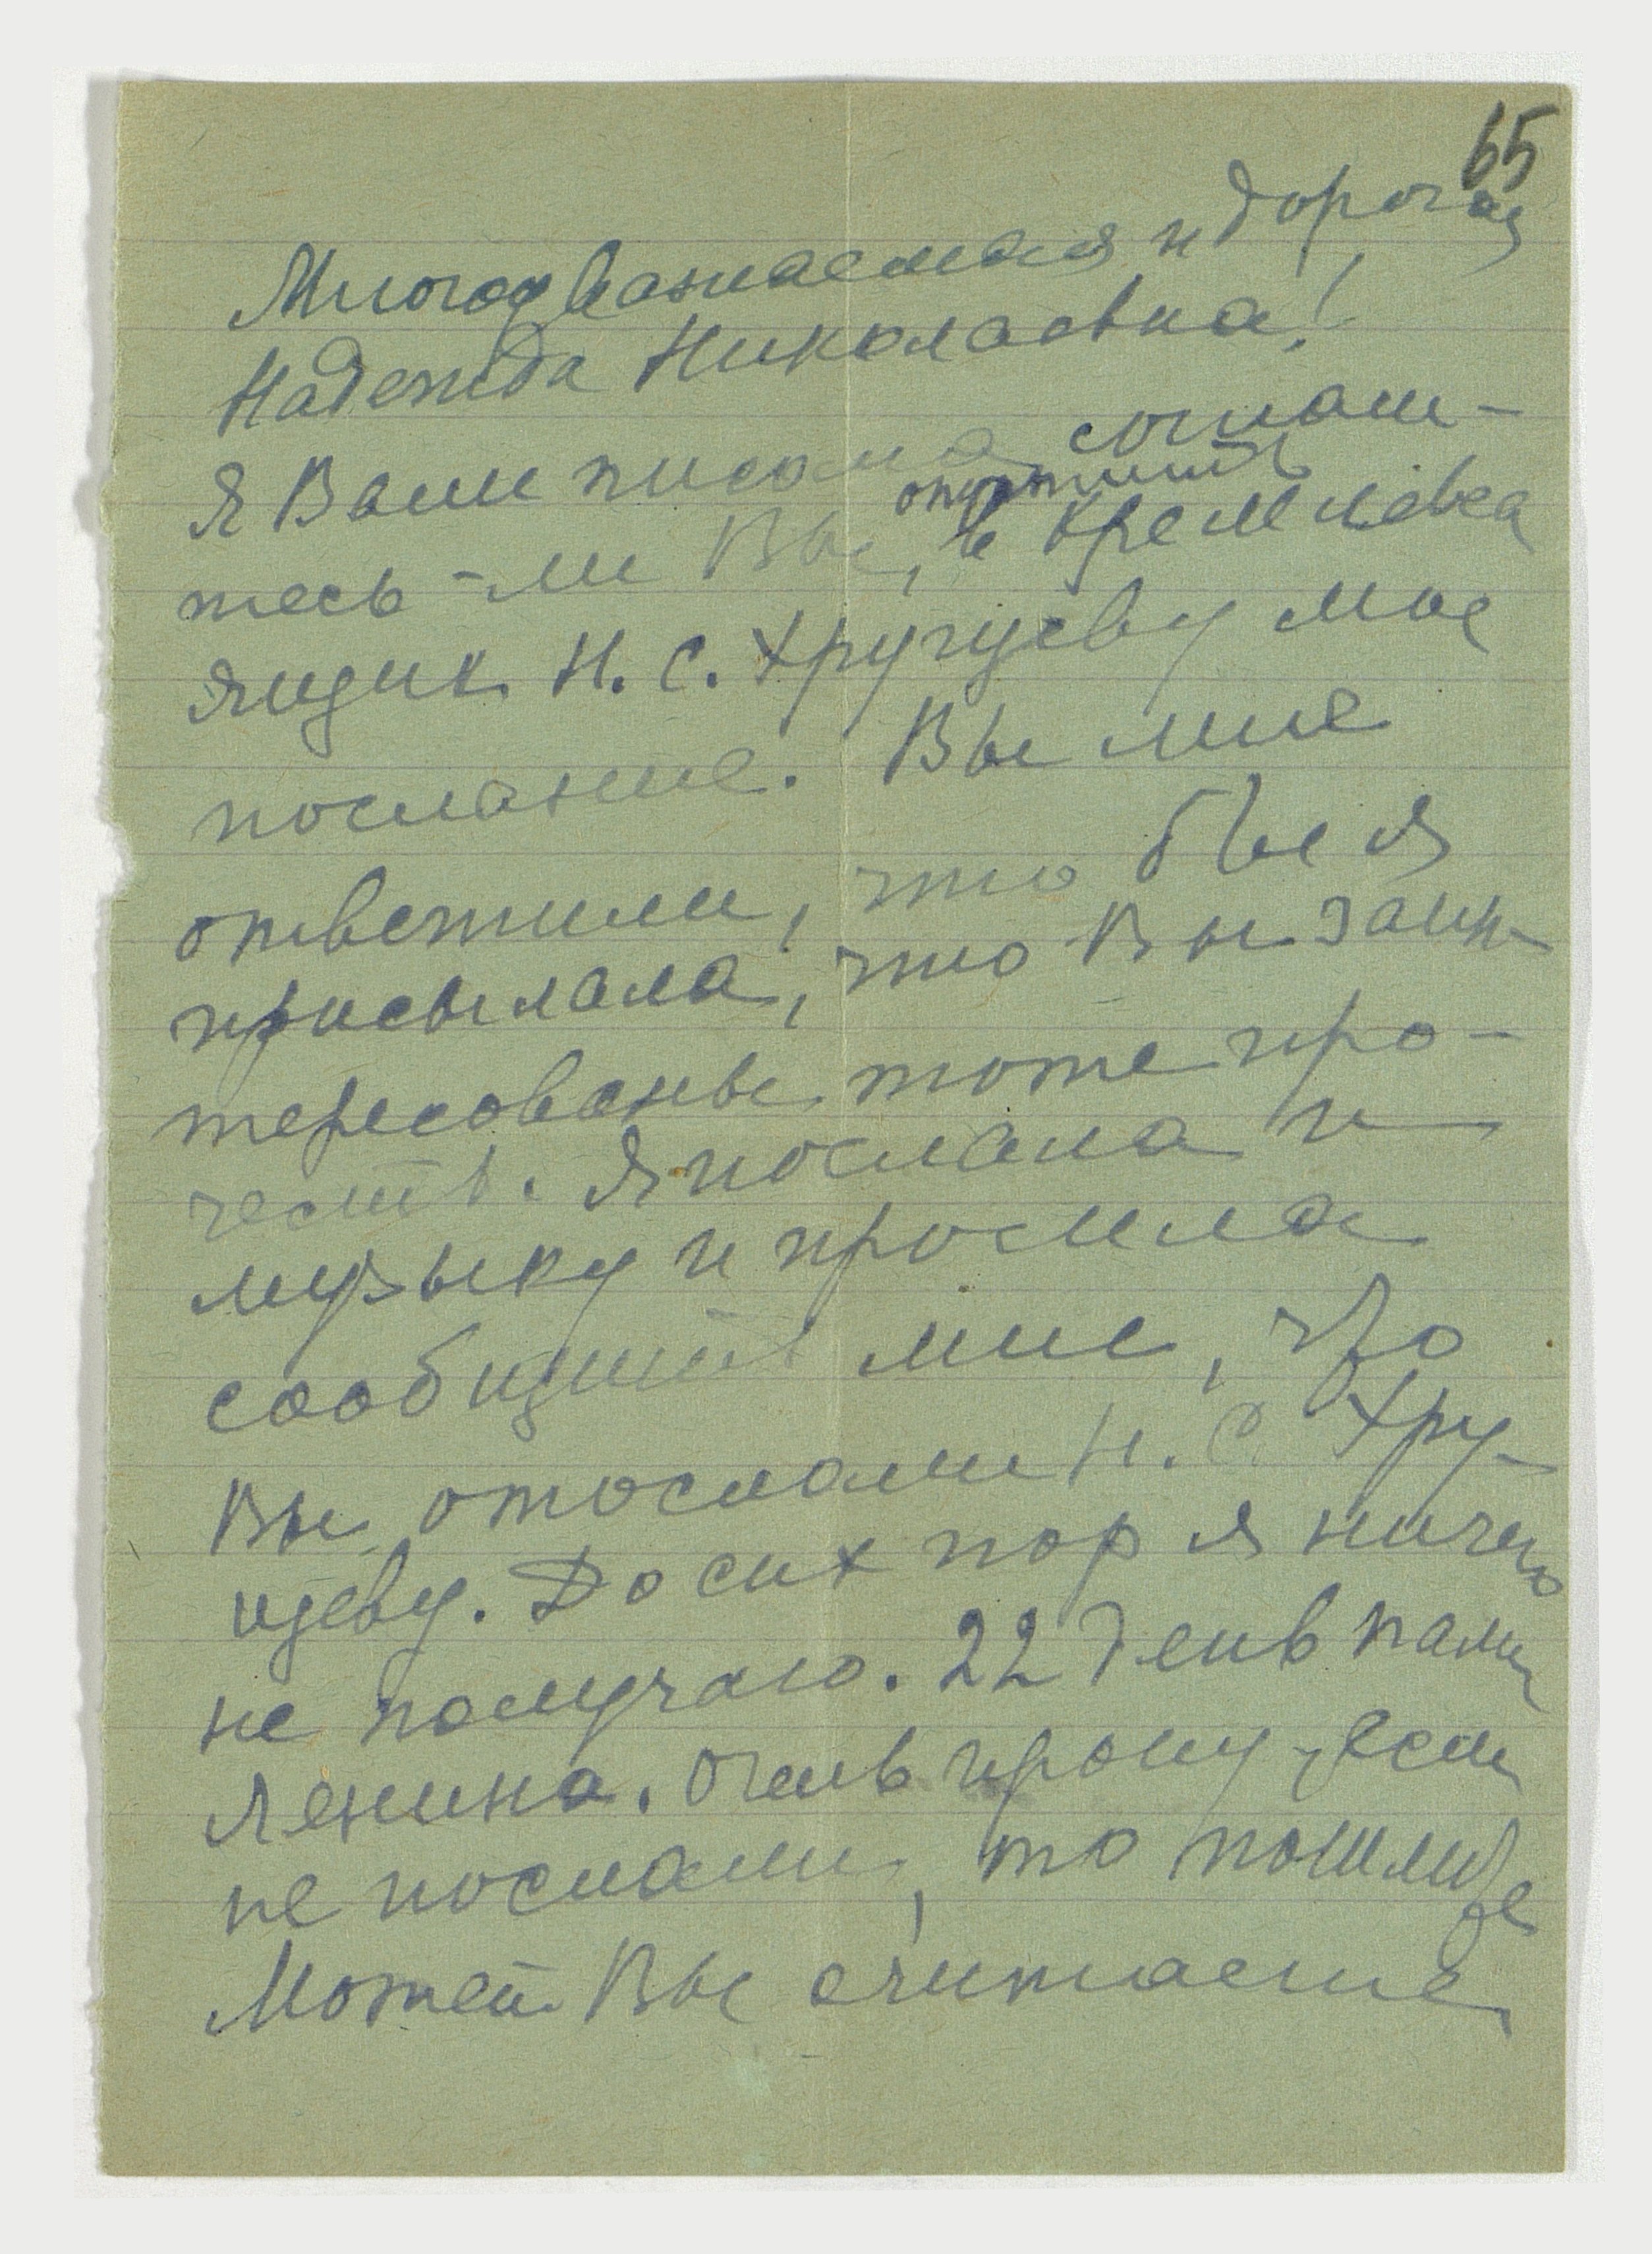 65
Многоуважаемая и дорогая
Надежда Николаевна!
Я Вам писала соглаши-
опустить
тесь-ли Вы, в кремлевка
ящик Н. С. Хрущеву мое
послание. Вы мне
ответили, что бы я
присылала, что Вы заин-
тересованы тоже про-
честь. Я послала и
музыку и просила
сообщить мне, что
Вы отослали Н. С. Хру-
щеву. До сих пор я ничего
не получаю. 22 день пами
Ленина. Очень прошу, если
не послали, то пошлите
Может Вы считаете